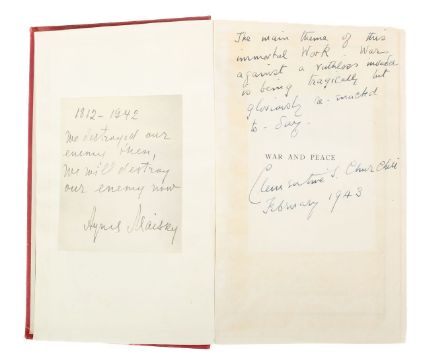 1812-1942
We destroyed our
enemy then,
We will destroy
our enemy now
Agnes Maisky
The main theme of this
immortal Work - War
against a ruthless invader
is being tragically but
gloriously re-enacted
to-day.
WAR AND PEACE
Clementine S. Churchill
February 1943